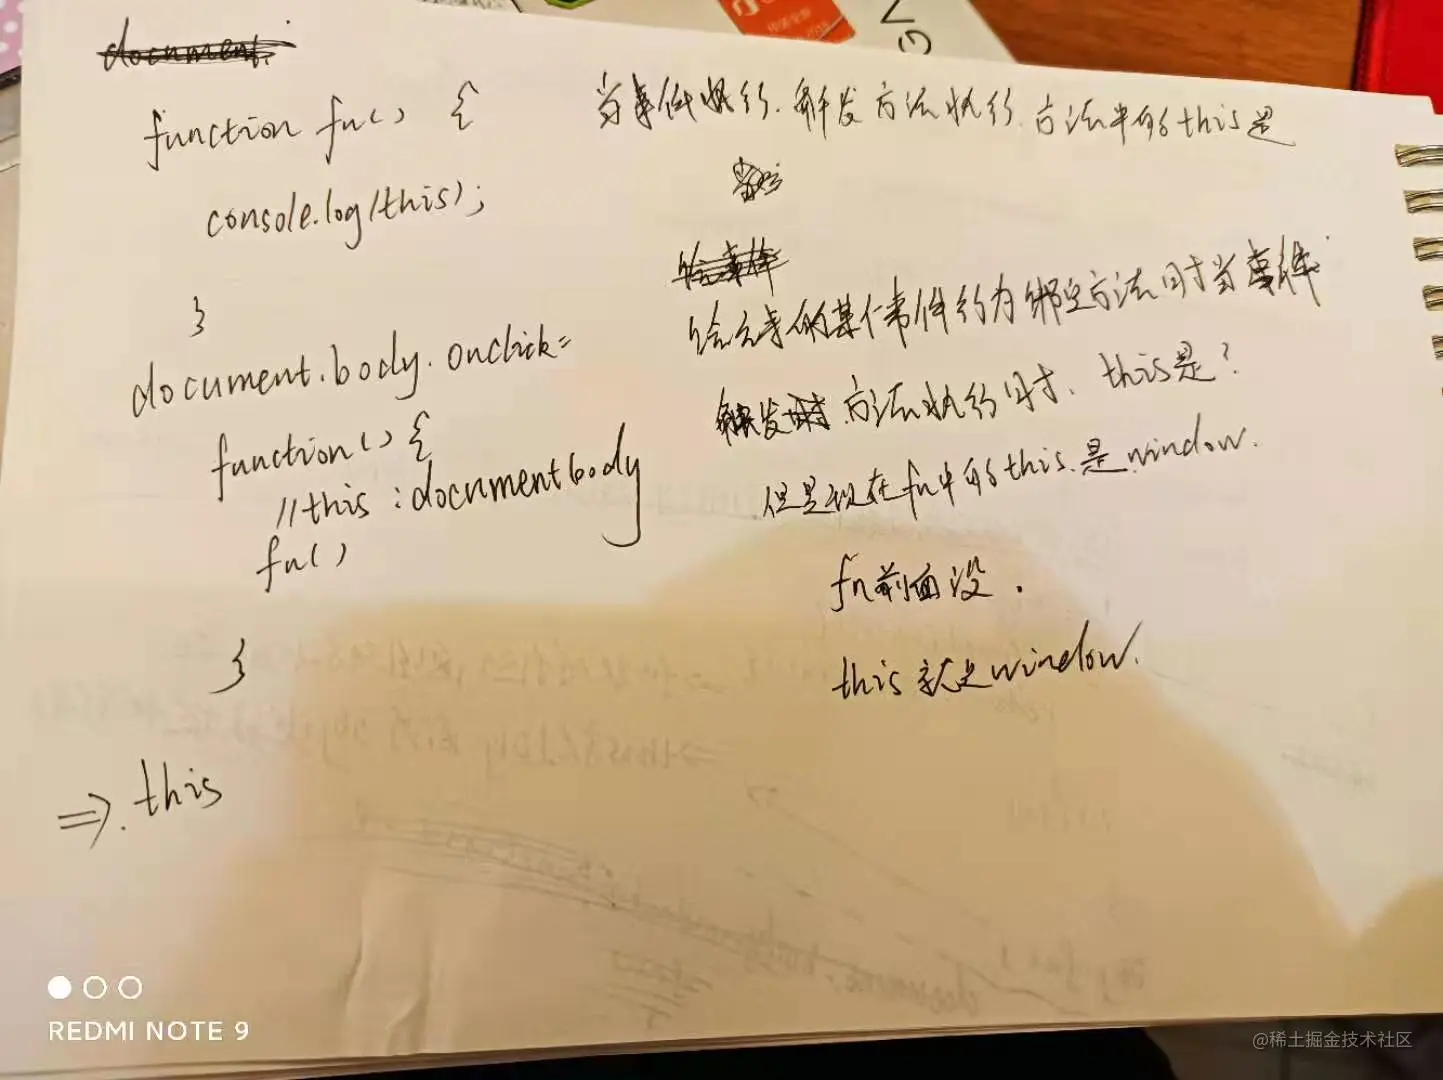 function fn() {
console.log(this);
}
document.body.onclick=
function() {
//this:document body
fn()
}
⇒. this
当事件执行. 触发方法执行. 方法中的this是
给元素的某个事件行为绑定方法时当事件
触发时 方法执行时、this是?
但是现在fn中的this.是window.
fn前面没 .
this就是window.
REDMI NOTE 9
@稀土掘金技术社区